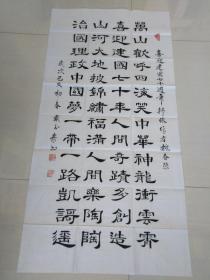 喜迎建國七十週年
萬山歡呼四海笑中華神龍衝雲霄
喜迎建國七十年人間奇蹟多創造
山河大地披錦繡福滿人間樂陶陶
治國理政中國夢一帶一路凱歌遙
歲次己亥初春